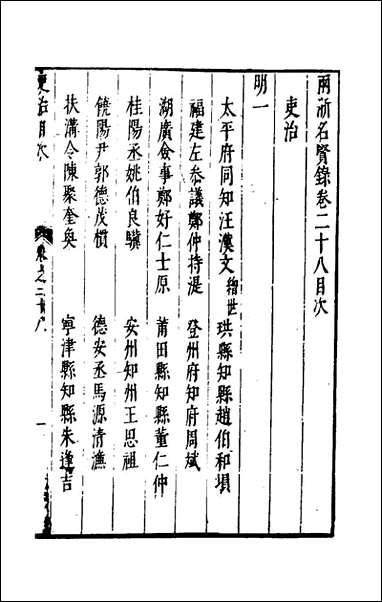 兩浙名賢錄卷二十八目次
吏治
明一
太平府同知汪漢文繒世 珙縣知縣趙伯和塤
福建左參議鄭仲持湜 登州府知府周斌
湖廣僉事鄭好仁士原 莆田縣知縣董仁仲
桂陽丞姚伯良驥 安州知州王思祖
饒陽尹郭德茂樌 德安丞馬源清漁
扶溝令陳聚奎奐 寧津縣知縣朱逢吉
吏治目次 卷之二十八 一